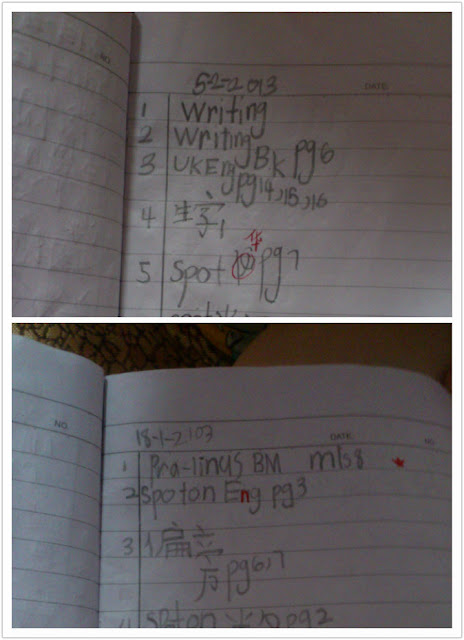 NO.
5-2-2013
DATE:
1 Writing
2 Writing
3 UKEng Bk pg6
pg14,15,16
4 生字1
5 Spot 华 pg7
NO.
18-1-2103
DATE:
NO.
1 Pra-linus BM mls8
2 Spoton Eng pg3
3 偏旁 pg6,7
pg2